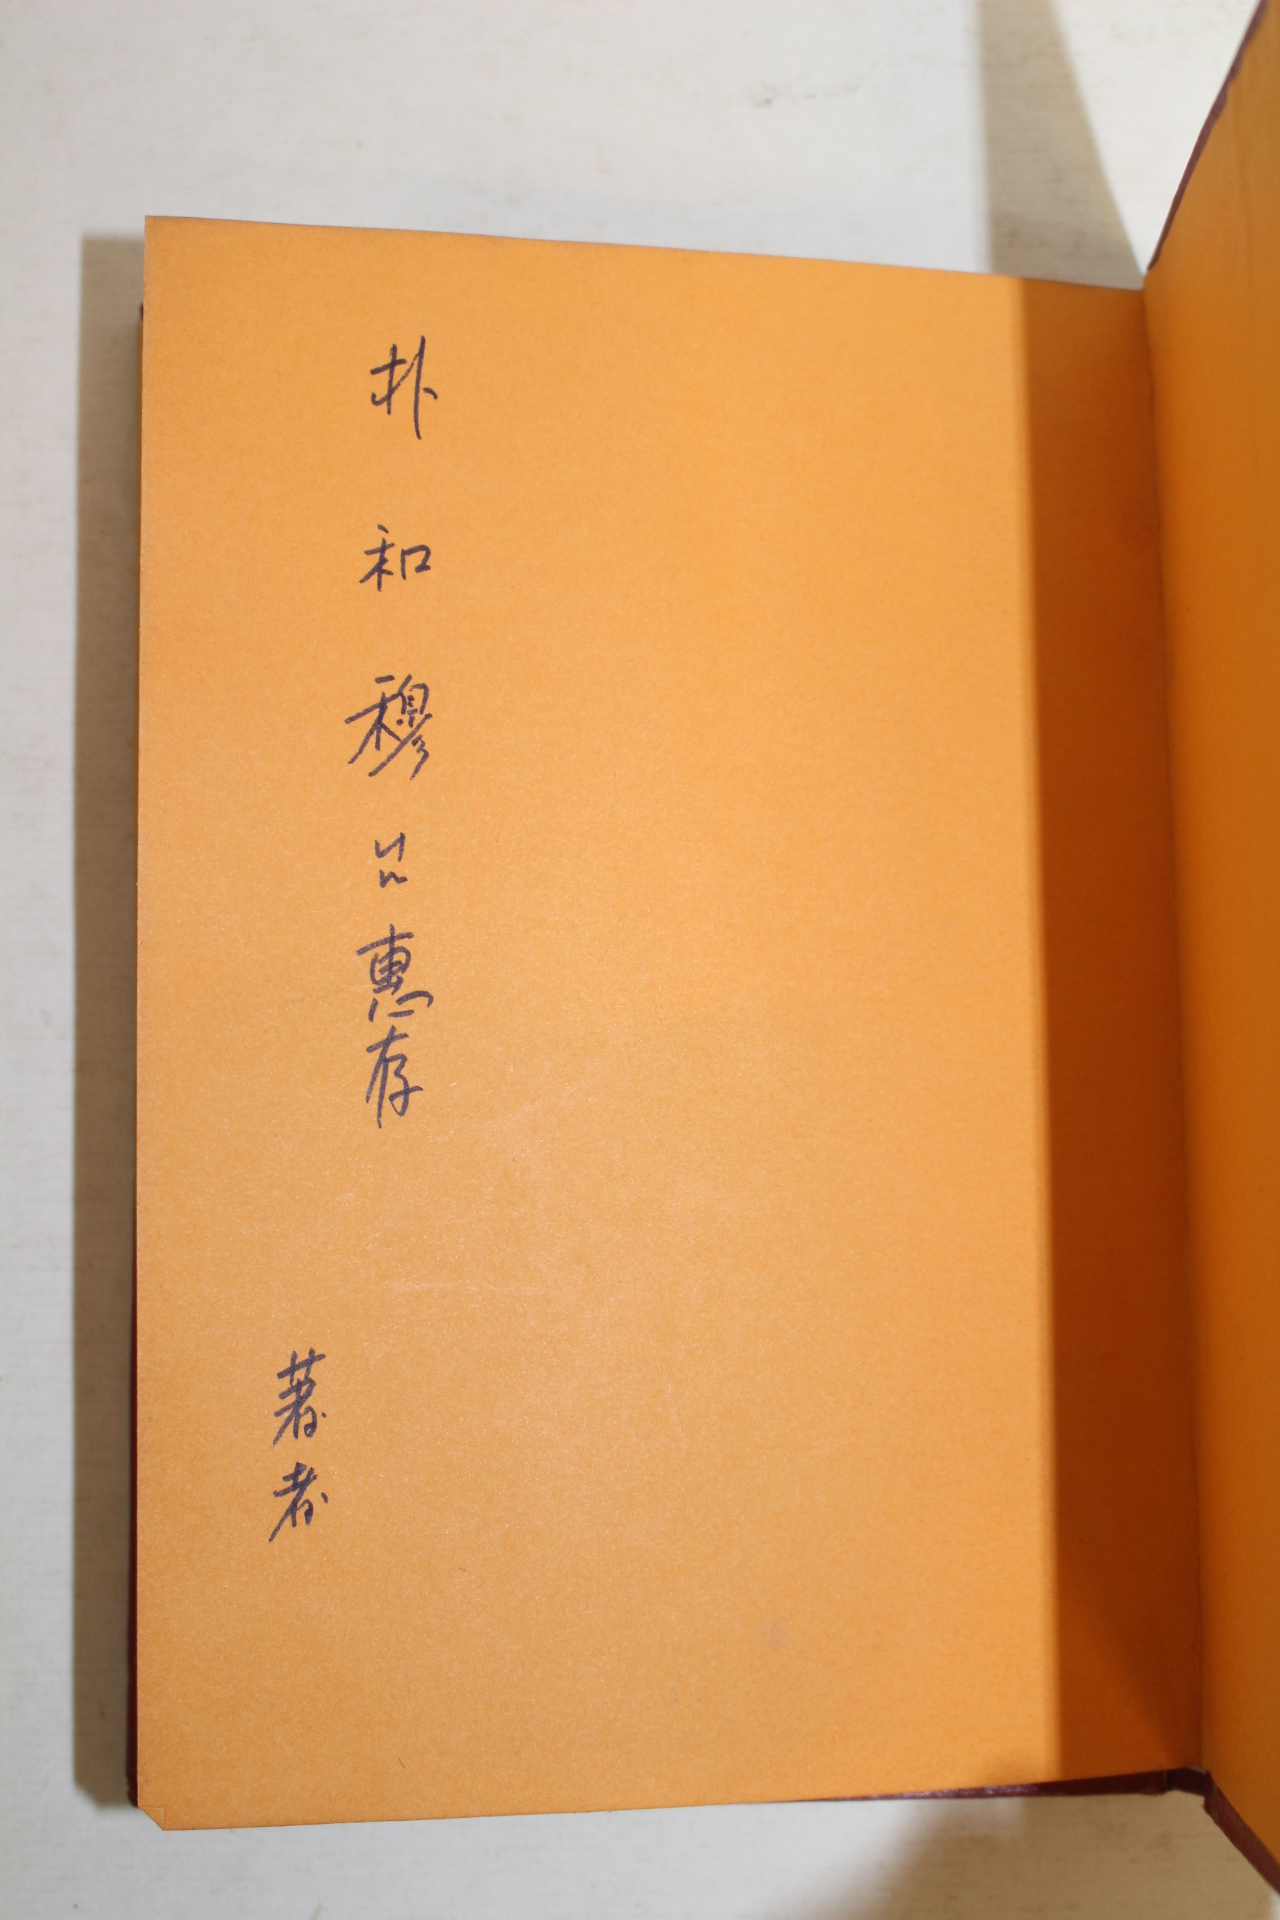 朴和穆님惠存
著者